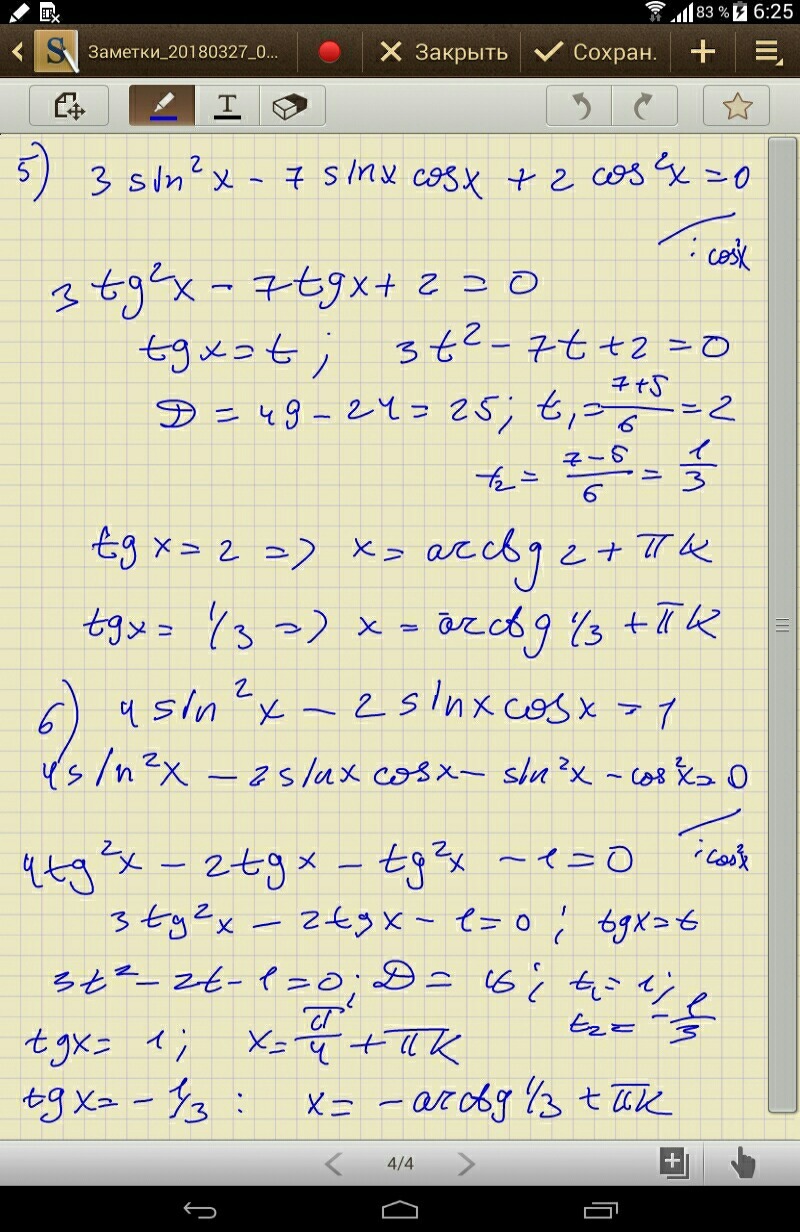 83 % 6:25
Заметки_20180327_0... Закрыть Сохран.
T
5) 3 sin²x - 7 sinx cosx + 2 cos²x = 0
: cos²x
3 tg²x - 7tgx + 2 = 0
tgx = t ; 3t² - 7t + 2 = 0
D = 49 - 24 = 25; t₁ = (7+5)/6 = 2
t₂ = (7-5)/6 = 1/3
tg x = 2 => x = arctg 2 + πk
tgx = 1/3 => x = arctg 1/3 + πk
6) 4 sin²x - 2 sinx cosx = 1
4 sin²x - 2 sinx cosx - sin²x - cos²x = 0
: cos²x
4tg²x - 2tgx - tg²x - 1 = 0
3tg²x - 2tgx - 1 = 0 ; tgx = t
3t² - 2t - 1 = 0; D = 16; t₁ = 1;
t₂ = -1/3
tgx = 1; x = π/4 + πk
tgx = - 1/3 : x = - arctg 1/3 + πk
4/4